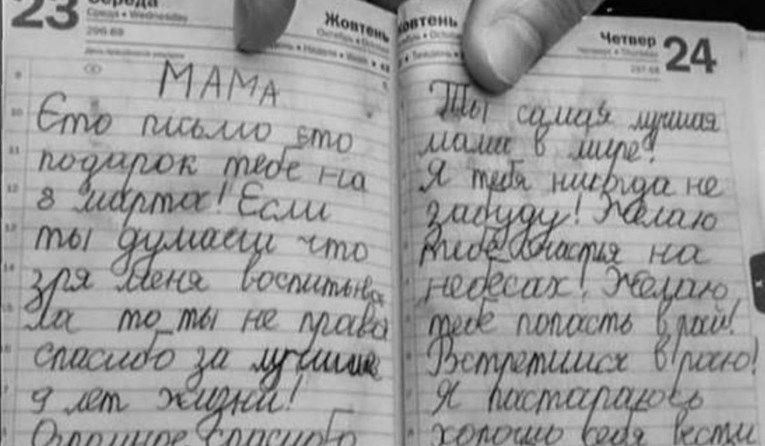 23 Середа
Среда • Wednesday
296-69
Жовтень
Октябрь •
МАМА
Єто письмо єто
подарок тебе на
8 марта! Єсли
ты думаєш что
зря меня воспитыва
ла то ты не права
спасибо за лучшие
9 лет жизни!
Огромное спасибо
Жовтень
Четвер
Четверг • Thursday
24
297-68
Ты самая лучшая
мама в мире!
Я тебя никогда не
забуду! Желаю
тебе счастья на
небесах! Желаю
тебе попасть в рай!
Встретимся в раю!
Я постараюсь
хорошо себя вести